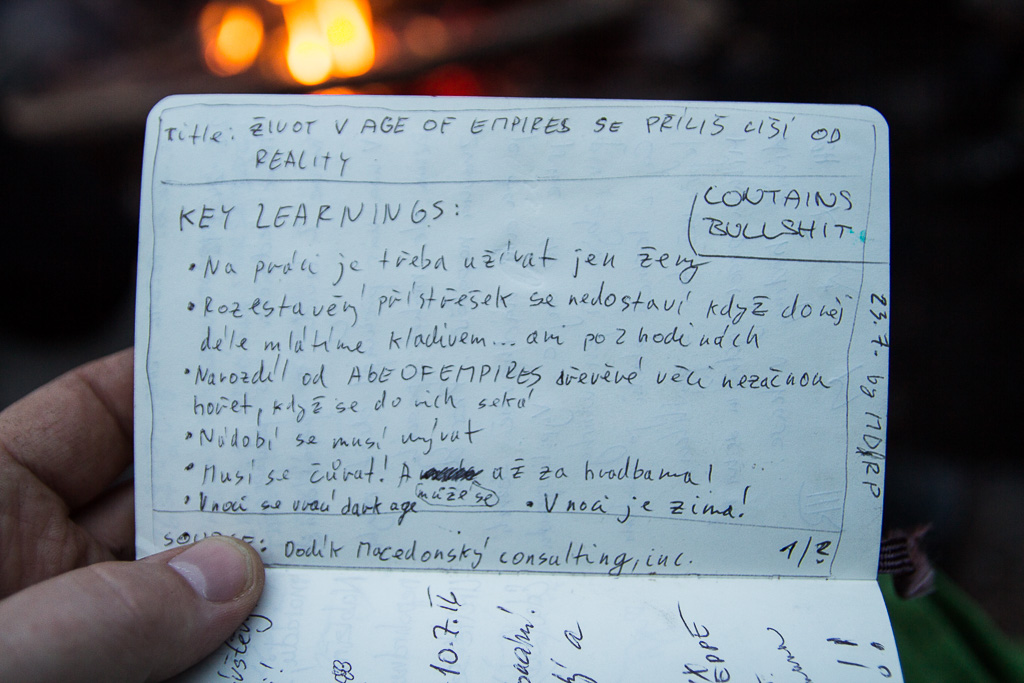 Title: ŽIVOT V AGE OF EMPIRES SE PŘÍLIŠ LIŠÍ OD
REALITY
KEY LEARNINGS:
CONTAINS
BULLSHIT
• Na práci je třeba užívat jen ženy
• Rozestavěný přístřešek se nedostaví když do něj
déle mlátíme kladivem... ani po 2 hodinách
• Narozdíl od AGE OF EMPIRES dřevěné věci nezačnou
hořet, když se do nich seká
• Nádobí se musí umývat
• Musí se čůrat! A může se až za hradbama!
• V noci se vrací dark age
• V noci je zima!
SOURCE: Dodík Macedonský consulting, inc.
1/2
23.7. by MD/RP
10.7.